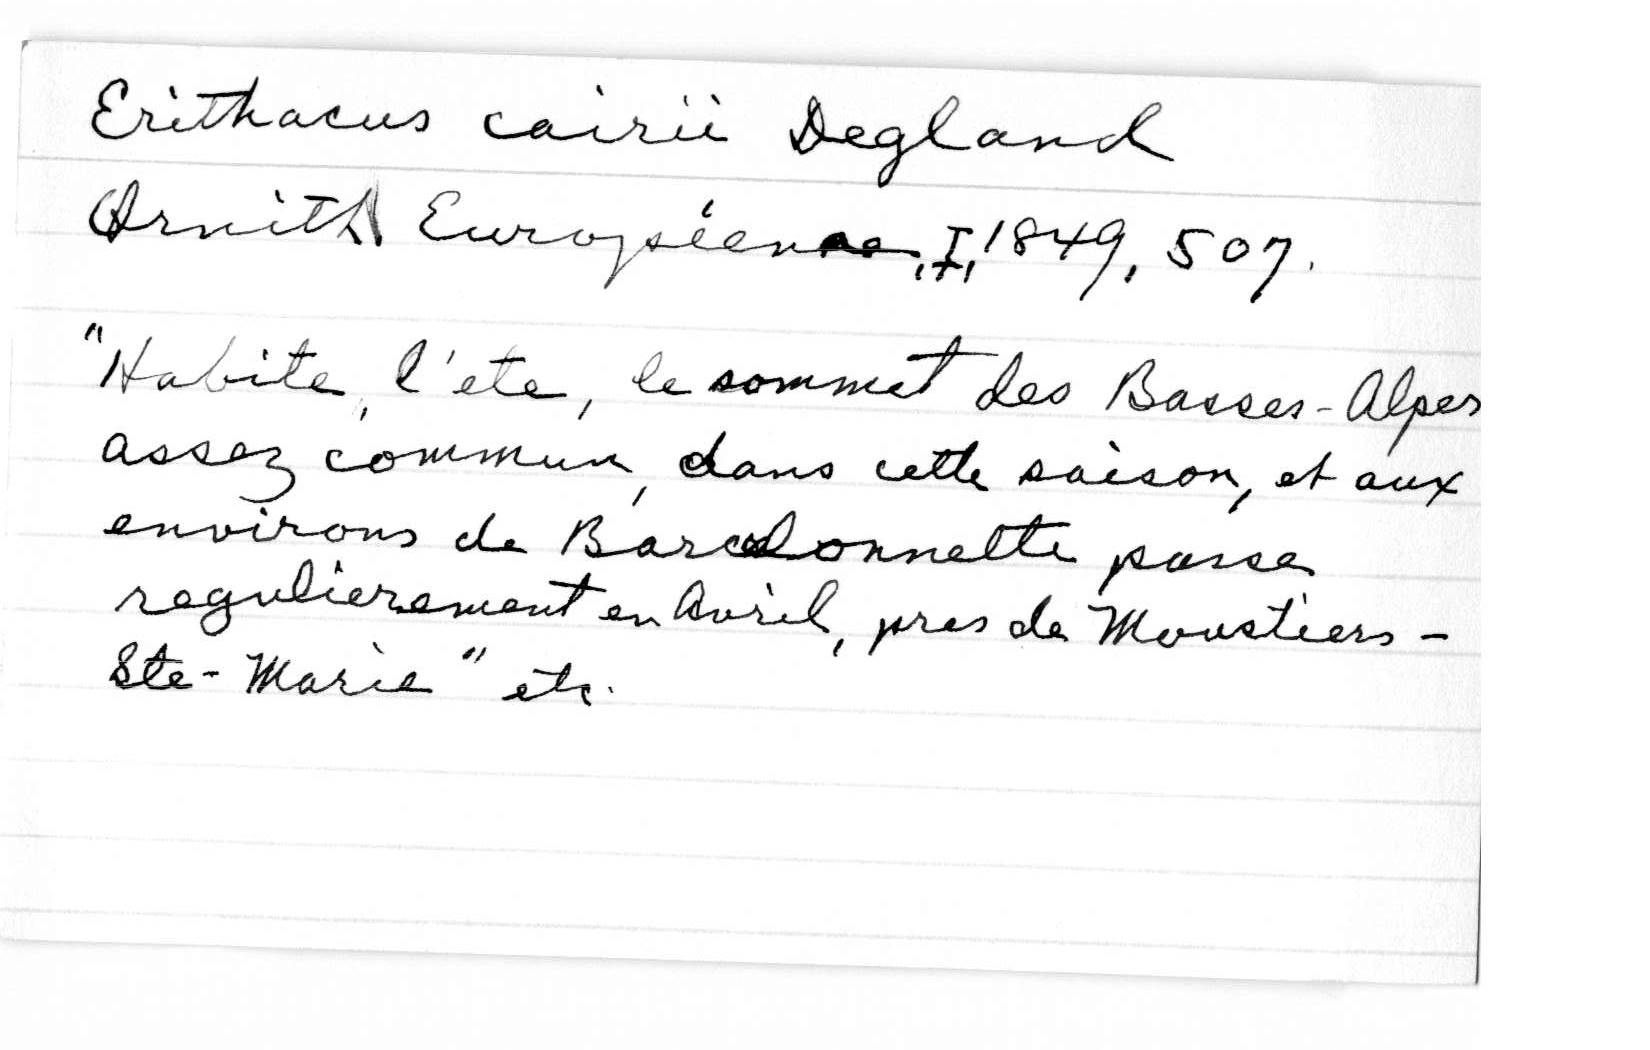 Erithacus cairii Degland
Ornith Européenne, I, 1849, 507.
"Habite, l'ete, le sommet des Basses-Alpes
assez commun, dans cette saison, et aux
environs de Barcelonnette passe
regulierement en Avril, pres de Moustiers-
Ste-Marie" etc.